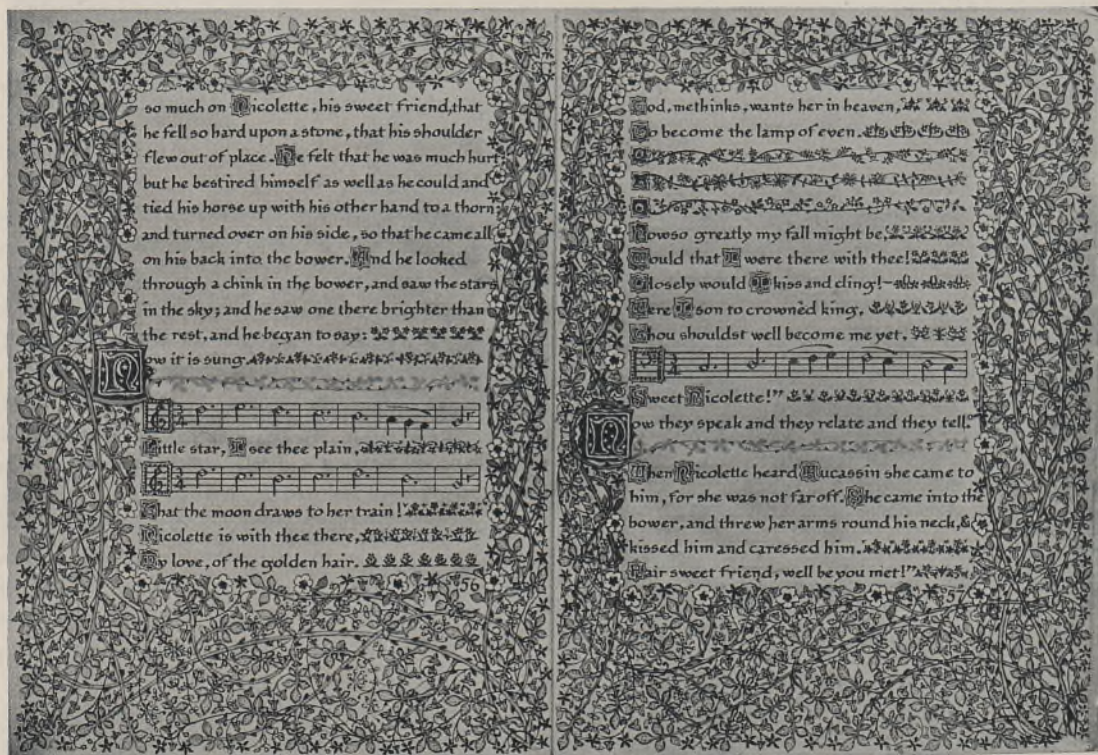 so much on Nicolette, his sweet friend, that
he fell so hard upon a stone, that his shoulder
flew out of place. He felt that he was much hurt
but he bestired himself as well as he could and
tied his horse up with his other hand to a thorn
and turned over on his side, so that he came all
on his back into the bower. And he looked
through a chink in the bower, and saw the stars
in the sky; and he saw one there brighter than
the rest, and he began to say:
Now it is sung.
Little star, I see thee plain,
That the moon draws to her train!
Nicolette is with thee there,
My love, of the golden hair.
56
God, methinks, wants her in heaven,
To become the lamp of even.
Howso greatly my fall might be,
Would that I were there with thee!
Closely would I kiss and cling!—
Were I son to crownèd king,
Thou shouldst well become me yet,
Sweet Nicolette!”
Now they speak and they relate and they tell.
When Nicolette heard Aucassin she came to
him, for she was not far off. She came into the
bower, and threw her arms round his neck, &
kissed him and caressed him.
Fair sweet friend, well be you met!”
57